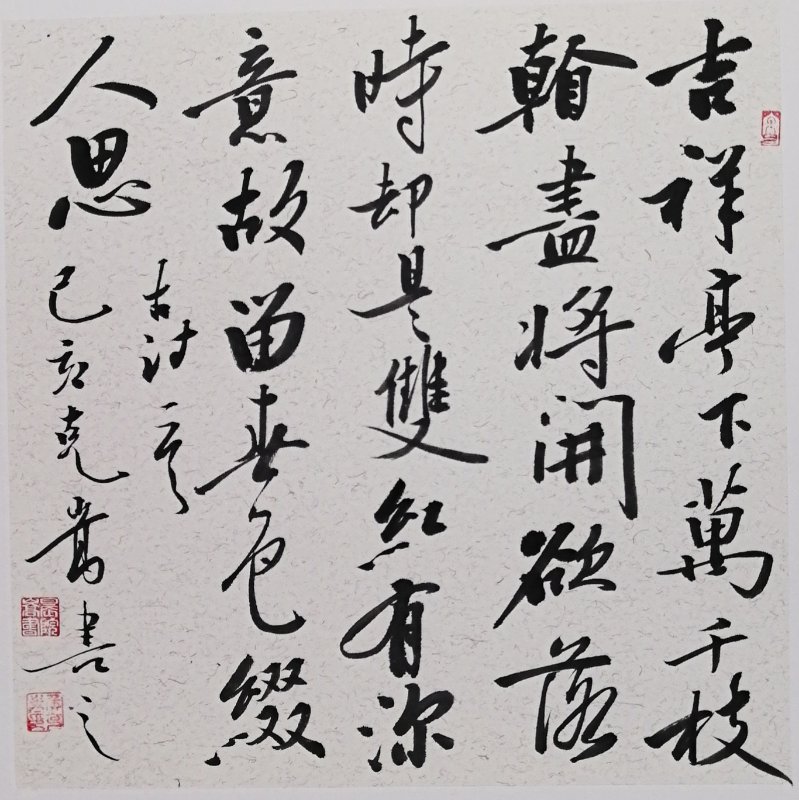 吉祥亭下萬千枝
看盡將開欲落
時却是雙紅有深
意故留春色綴
人思
古诗一首
己亥克嵩書之